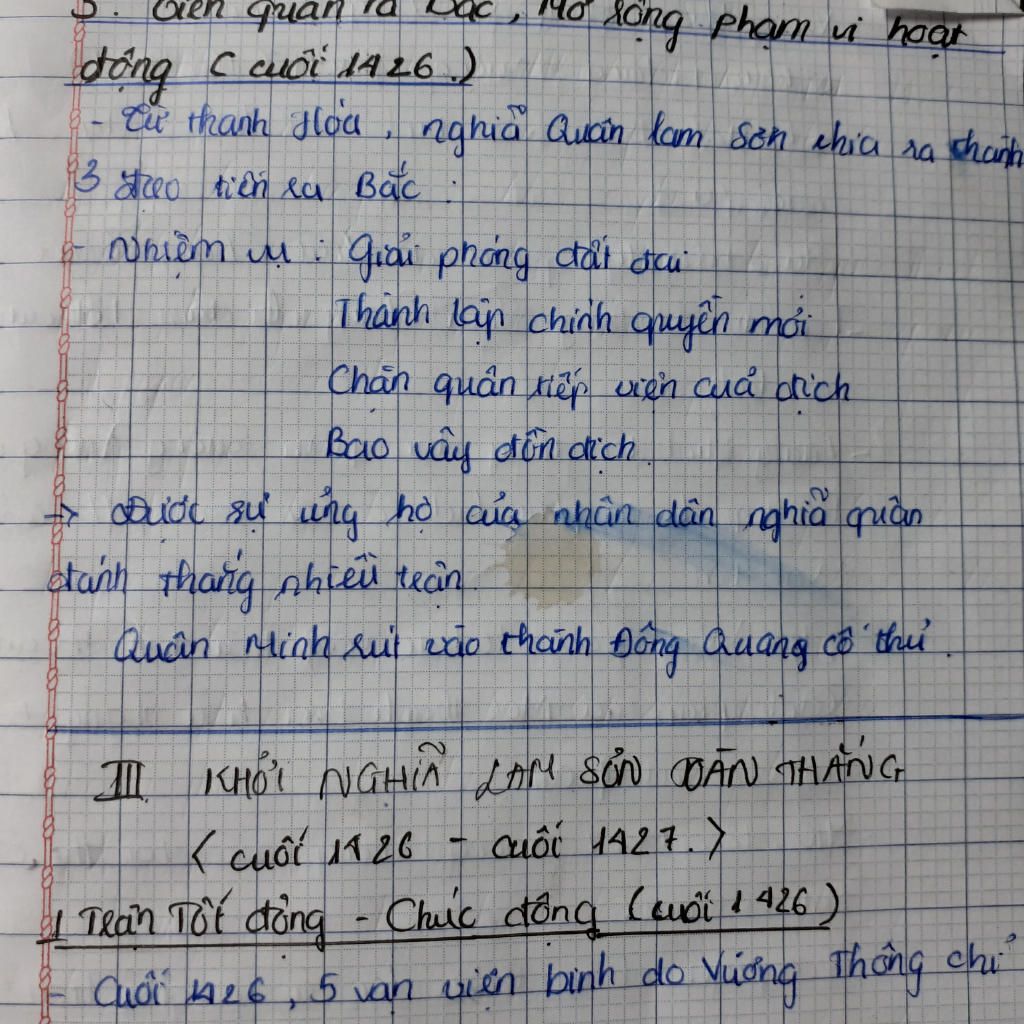 3. Tiến quân ra Bắc, mở rộng phạm vi hoạt
động (cuối 1426.)
- Từ thanh Hóa, nghiã Quân lam Sơn chia ra thành
3 đạo tiến ra Bắc :
- Nhiệm vụ : Giải phóng đất đai
Thành lập chính quyền mới
Chặn quân tiếp viện cuả địch
Bao vây đồn địch.
→ Được sự ủng hộ của nhân dân nghiã quân
đánh thắng nhiều trận.
Quân Minh rút vào thành Đông Quang cố thủ.
III KHỞI NGHIÃ LAM SƠN TOÀN THẮNG
< cuối 1426 - cuối 1427. >
1 Trận Tốt động - Chúc động (cuối 1426)
- Cuối 1426, 5 vạn viện binh do Vương Thông chỉ